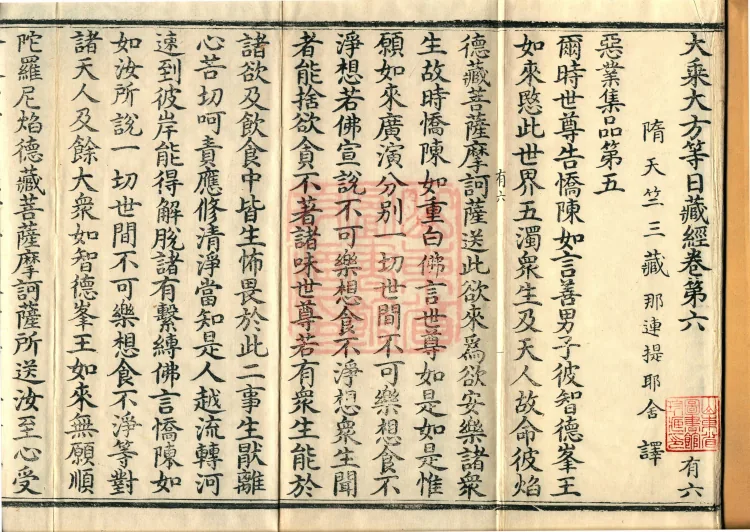 大乘大方等日藏經卷第六
有六
隋天竺三藏那連提耶舍譯
惡業集品第五
爾時世尊告憍陳如言善男子彼智德峯王
如來愍此世界五濁衆生及天人故命彼焰
有六
德藏菩薩摩訶薩送此欲來爲欲安樂諸衆
生故時憍陳如重白佛言世尊如是如是惟
願如來廣演分別一切世間不可樂想食不
淨想若佛宣說不可樂想食不淨想衆生聞
者能捨欲貪不著諸味世尊若有衆生能於
諸欲及飲食中皆生怖畏於此二事生厭離
心苦切呵責應修清淨當知是人越流轉河
速到彼岸能得解脫諸有繫縛佛言憍陳如
如汝所說一切世間不可樂想食不淨等對
諸天人及餘大衆如智德峯王如來無願順
陀羅尼焰德藏菩薩摩訶薩所送汝至心受